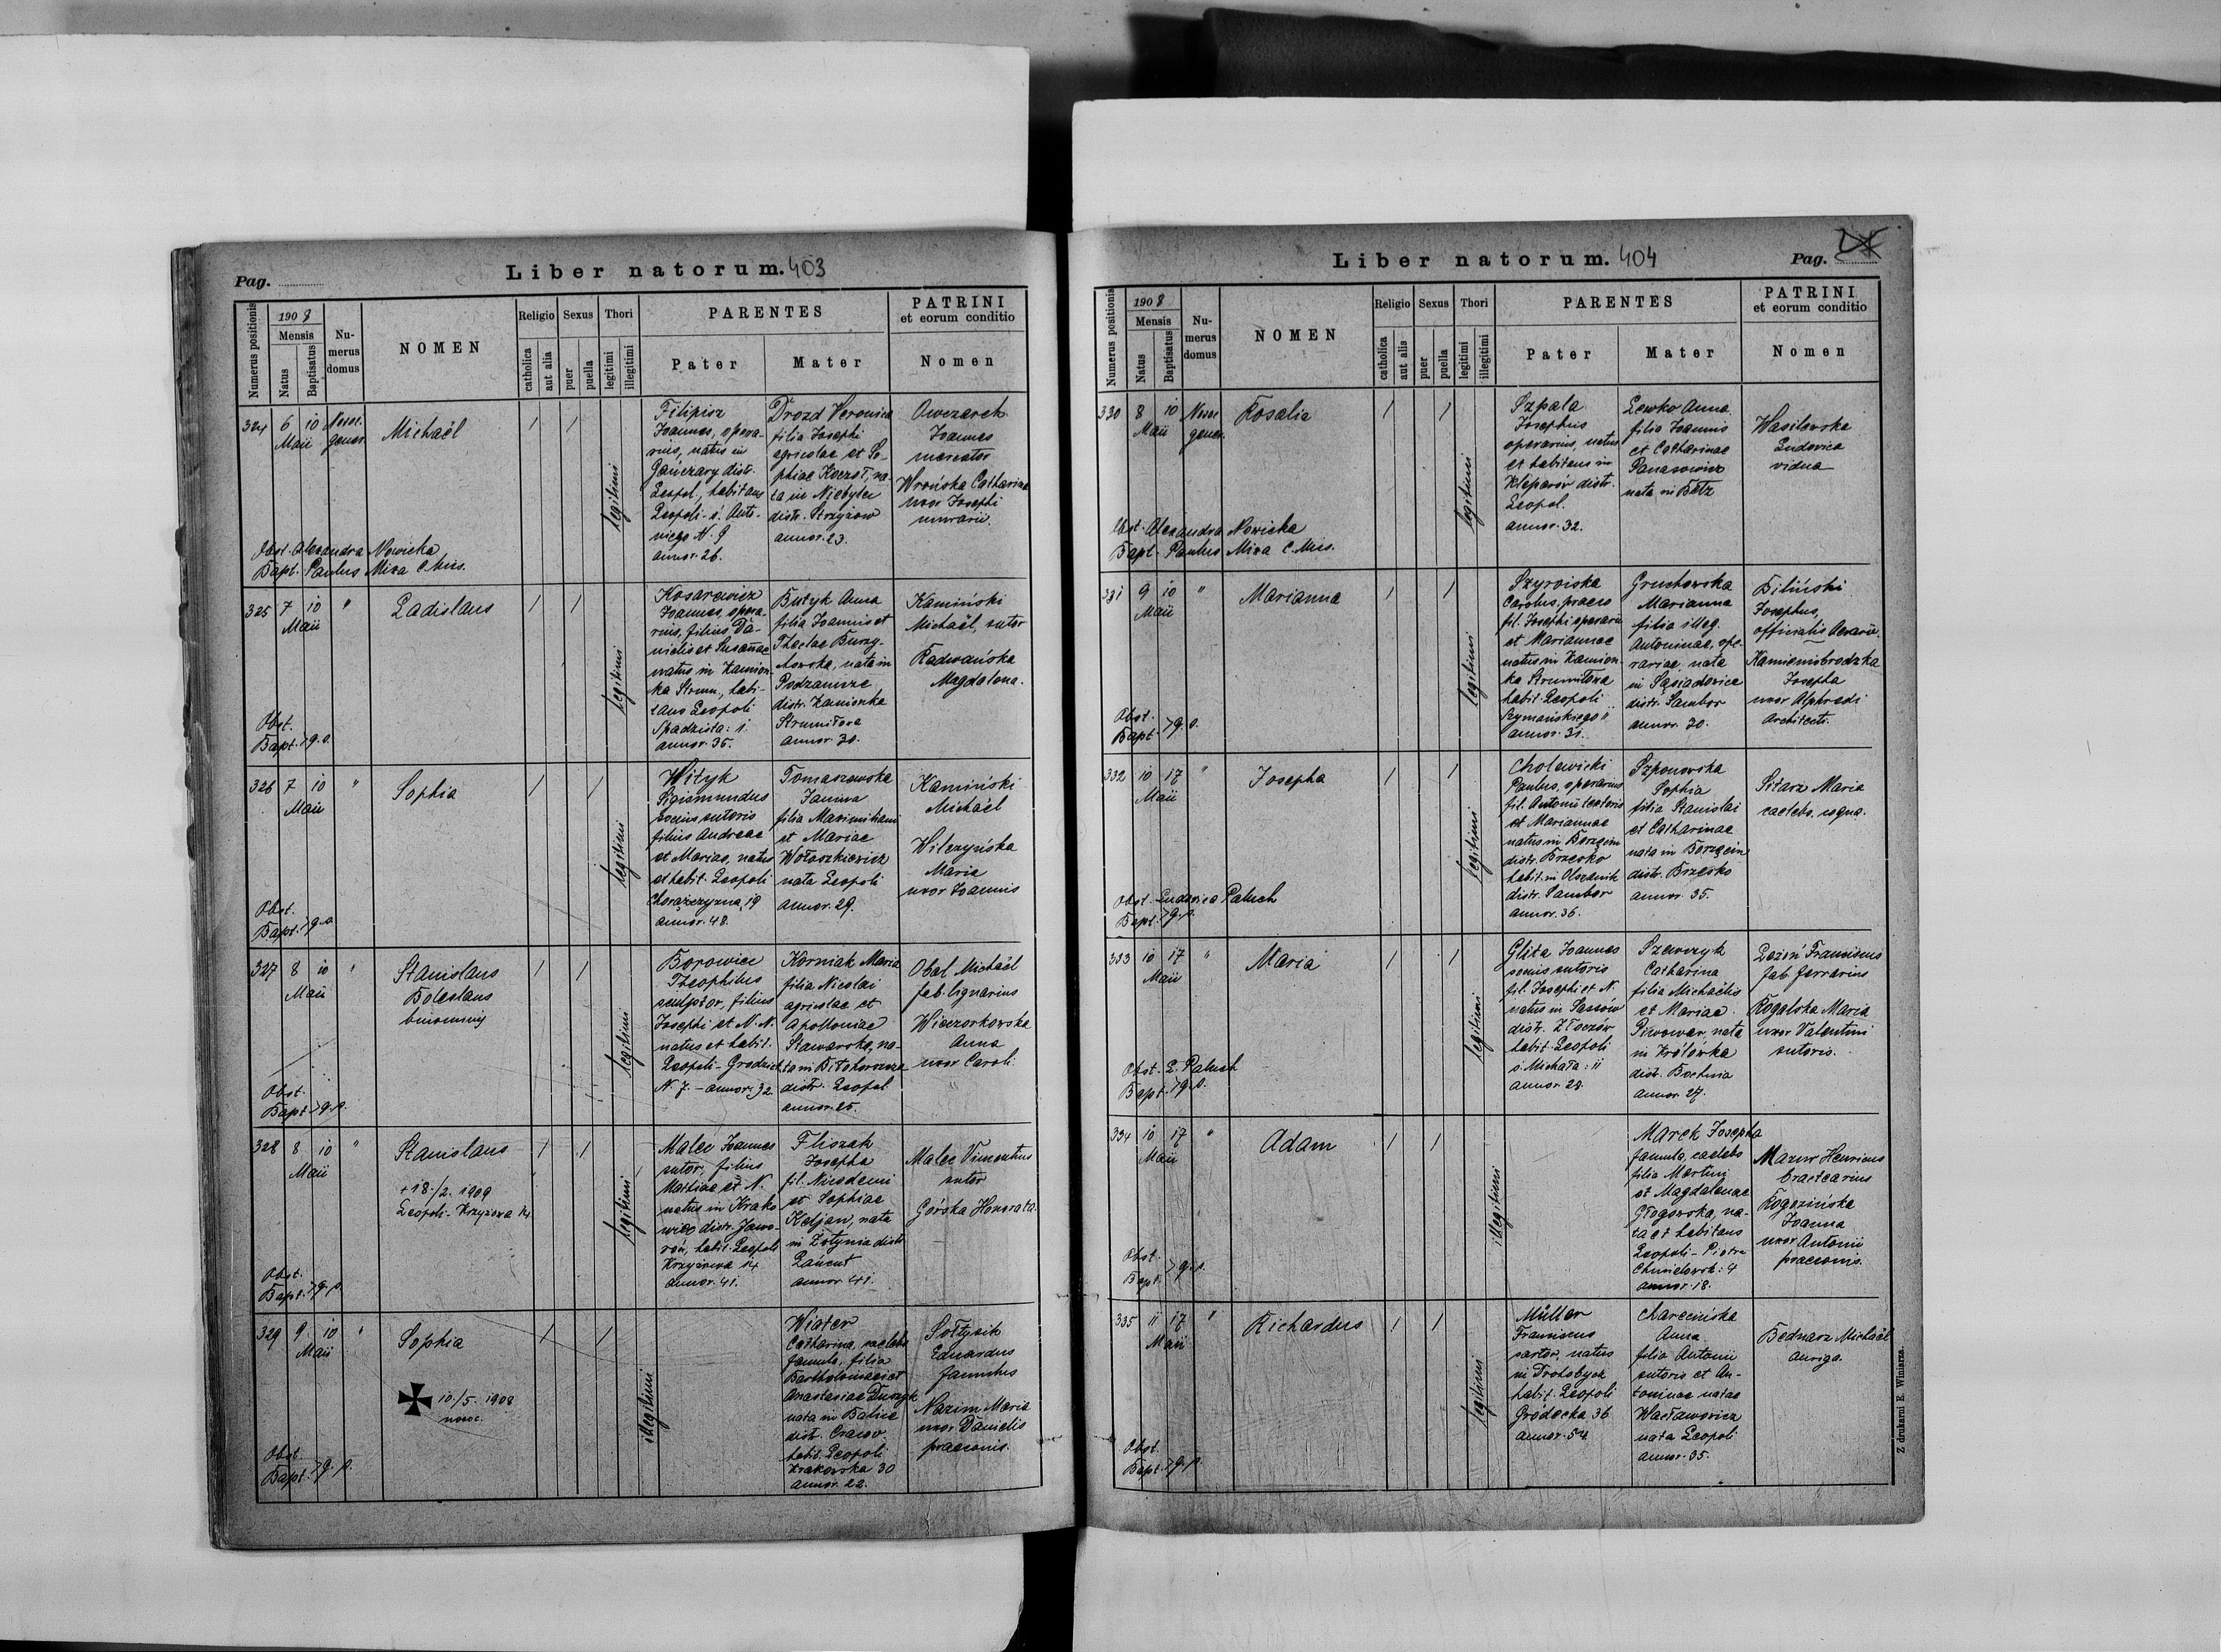 Pag.
Liber natorum. 403
Numerus positionis
1908
Mensis
Natus
Baptisatus
Numerus domus
NOMEN
Religio
catholica
aut alia
Sexus
puer
puella
Thori
legitimi
illegitimi
PARENTES
Pater
Mater
PATRINI
et eorum conditio
Nomen
324
6
10
Maii
Nosoc.
gener.
Michaël
legitimi
Filipisz
Joannes, opera-
rius, natus in
Gańczary distr.
Leopol., habitans
Leopoli - ś. Anto-
niego N. 9
annor. 26.
Drozd Veronica
filia Josephi
agricolae et So-
phiae Koczoł, na-
ta in Niebylec
distr. Strzyżow
annor. 23.
Owczarek
Joannes
mercator
Wrońska Catharina
uxor Josephi
murarii.
Obst. Alexandra Nowicka
Bapt. Paulus Mixa C. Miss.
325
7
10
Maii
"
Ladislaus
legitimi
Kosarewicz
Joannes, opera-
rius, filius Da-
nielis et Susannae
natus in Kamion-
ka Strum., habi-
tans Leopoli
Spadzista: 1.
annor. 35.
Butyk Anna
filia Joannis et
Theclae Burzy-
kowska, nata in
Podzamcze
distr. Kamionka
Strumiłowa
annor. 30.
Kamiński
Michaël, sutor
Radwańska
Magdalena.
Obst.
Bapt. > q. s.
326
7
10
Maii
"
Sophia
legitimi
Wityk
Sigismundus
socius sutoris
filius Andreae
et Mariae, natus
et habit. Leopoli
Chorążczyzna, 19
annor. 48.
Tomaszewska
Janina
filia Maximiliani
et Mariae
Wołoszkiewicz
nata Leopoli
annor. 29.
Kamiński
Michaël
Wilczyńska
Maria
uxor Joannis
Obst.
Bapt. > q. s.
327
8
10
Maii
"
Stanislaus
Boleslaus
binominis
legitimi
Borowiec
Theophilus
sculptor, filius
Josephi et N. N.
natus et habit.
Leopoli - Grodzick
N. 7. - annor. 32.
Korniak Maria
filia Nicolai
agricolae et
Apolloniae
Stawarska, na-
ta in Biłohorszcze
distr. Leopol.
annor. 25.
Obal Michaël
fab. lignarius
Wieczorkowska
Anna
uxor Caroli
Obst.
Bapt. > q. s.
328
8
10
Maii
"
Stanislaus
+ 18./2. 1909
Leopoli - Krzyżowa 14
legitimi
Malec Joannes
sutor, filius
Mathiae et N.
natus in Krako-
wiec distr. Jawo-
rów, habit. Leopoli
Krzyżowa 14
annor. 41.
Fliszak
Josepha
fil. Nicodemi
et Sophiae
Keljan, nata
in Żołynia distr.
Łańcut
annor. 41.
Malec Vincentius
sutor
Górska Honorata.
Obst.
Bapt. > q. s.
329
9
10
Maii
"
Sophia
✠ 10./5. 1908
nosoc.
illegitimi
Wiater
Catharina, caelebs
famula, filia
Bartholomaei et
Anastasiae Duszyk
nata in Balice
distr. Cracov.
habit. Leopoli
Krakowska 30
annor. 22.
Sołtysik
Eduardus
famulus
Nazim Maria
uxor Danielis
praeconis.
Obst.
Bapt. > q. s.
Liber natorum. 404
Pag.
Numerus positionis
1908
Mensis
Natus
Baptisatus
Numerus domus
NOMEN
Religio
catholica
aut alia
Sexus
puer
puella
Thori
legitimi
illegitimi
PARENTES
Pater
Mater
PATRINI
et eorum conditio
Nomen
330
8
10
Maii
Nosoc.
gener.
Rosalia
legitimi
Szpala
Josephus
operarius, natus
et habitans in
Kleparów distr.
Leopol.
annor. 32.
Lewko Anna
filia Joannis
et Catharinae
Panasowicz
nata in Bełz
Wasilowska
Ludovica
vidua
Obst. Alexandra Nowicka
Bapt. Paulus Mixa C. Miss.
331
9
10
Maii
"
Marianna
legitimi
Szyroiska
Carolus, praeco
fil. Josephi operarii
et Mariannae
natus in Kamion-
ka Strumiłowa
habit. Leopoli
Szymańskiego 11
annor. 31.
Gruchowska
Marianna
filia illeg.
Antoninae, ope-
rariae, nata
in Sąsiadowice
distr. Sambor
annor. 30.
Biliński
Josephus,
officialis Aerarii.
Kamieniobrodzka
Josepha
uxor Alphredi
Architecti.
Obst.
Bapt. > q. s.
332
10
17
Maii
"
Josepha
legitimi
Cholewicki
Paulus, operarius
fil. Antonii textoris
et Mariannae
natus in Borzęcin
distr. Brzesko
habit. in Olszanik
distr. Sambor
annor. 36.
Szponowska
Sophia
filia Stanislai
et Catharinae
nata in Borzęcin
distr. Brzesko
annor. 35.
Sitarz Maria
caelebs, cogna.
Obst. Ludovica Paluch
Bapt. > q. s.
333
10
17
Maii
"
Maria
legitimi
Glita Joannes
socius sutoris
fil. Josephi et N.
natus in Sassów
distr. Złoczów
habit. Leopoli
ś. Michała: 11
annor. 28.
Szewczyk
Catharina
filia Michaëlis
et Mariae
Piwowar, nata
in Królówka
distr. Bochnia
annor. 27.
Leżoń Franciscus
fab. ferrarius
Rogalska Maria
uxor Valentini
sutoris.
Obst. L. Paluch
Bapt. > q. s.
334
10
17
Maii
"
Adam
illegitimi
Marek Josepha
famula, caelebs
filia Martini
et Magdalenae
Głogowska, na-
ta et habitans
Leopoli - Piotra
Chmielowsk: 4
annor. 18.
Mazur Henricus
bractearius
Rogozińska
Joanna
uxor Antonii
praeconis.
Obst.
Bapt. > q. s.
335
11
17
Maii
"
Richardus
legitimi
Müller
Franciscus
sartor, natus
in Drohobycz
habit. Leopoli
Gródecka 36
annor. 54
Charecińska
Anna
filia Antonii
sutoris et An-
toninae natae
Wacławowicz
nata Leopoli
annor. 35.
Bednarz Michaël
auriga.
Obst.
Bapt. > q. s.
Z drukarni E. Winiarza.